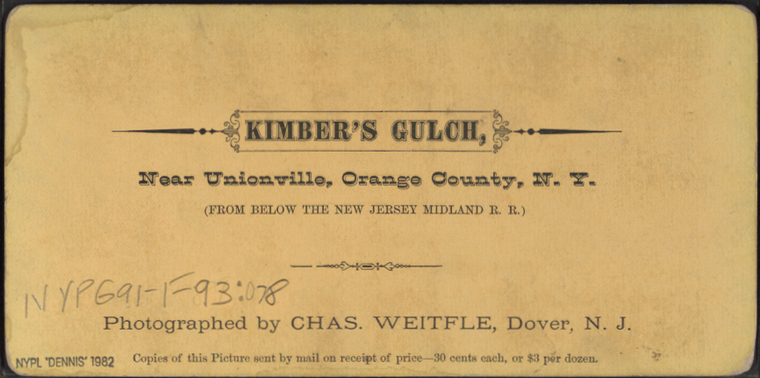 KIMBER'S GULCH,
Near Unionville, Orange County, N. Y.
(FROM BELOW THE NEW JERSEY MIDLAND R. R.)
NYPG91-F-93:078
Photographed by CHAS. WEITFLE, Dover, N. J.
NYPL "DENNIS" 1982
Copies of this Picture sent by mail on receipt of price—30 cents each, or $3 per dozen.